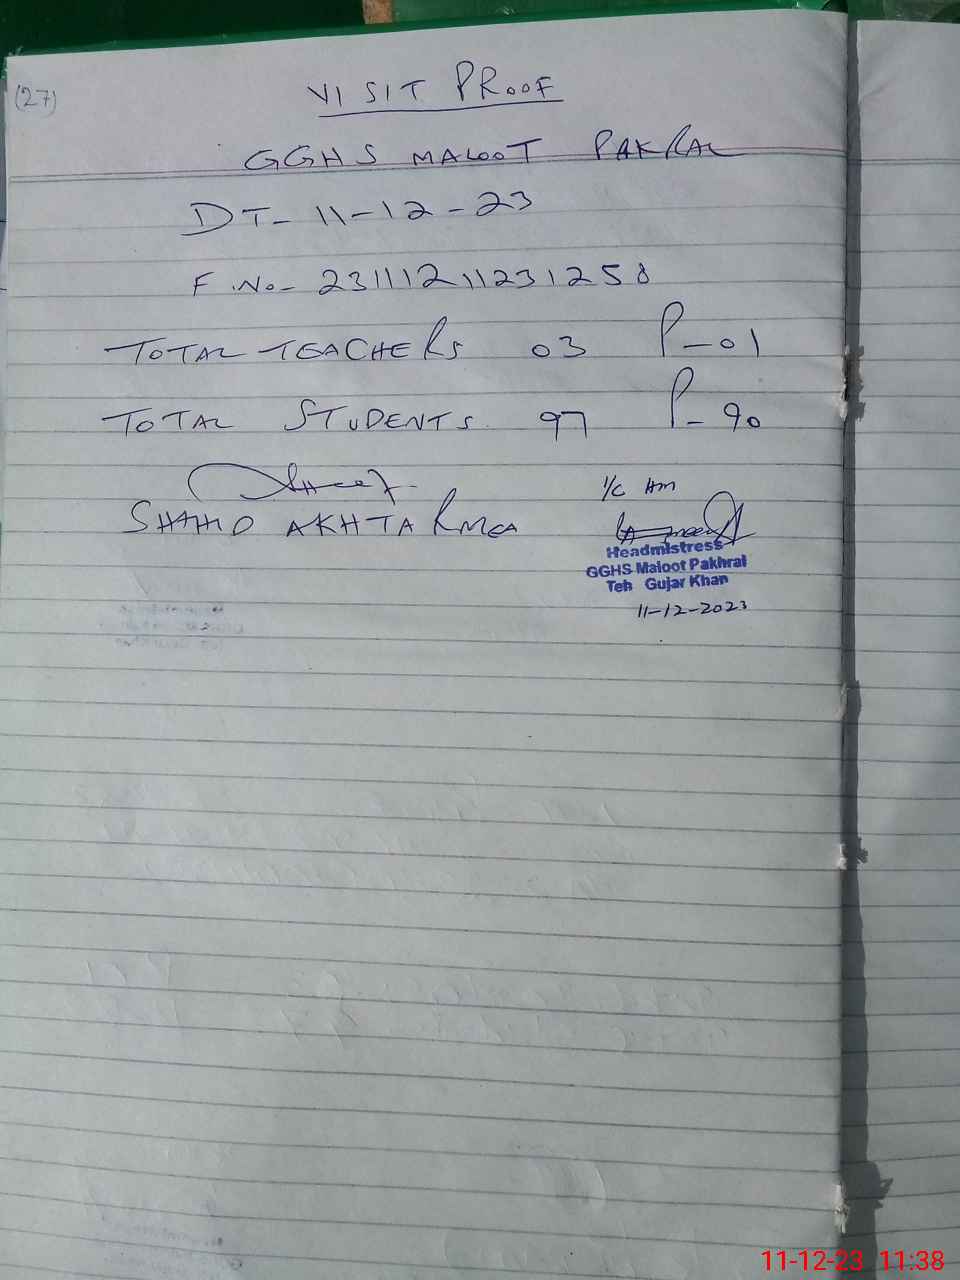 (27)
VISIT PROOF
GGHS MALOOT PAKRAL
DT- 11-12-23
F.No- 23111211231258
TOTAL TEACHERS 03 P-01
TOTAL STUDENTS 97 P-90
I/C HM
SHAHID AKHTAR MEA
Headmistress
GGHS Maloot Pakhral
Teh Gujar Khan
11-12-2023
11-12-23 11:38